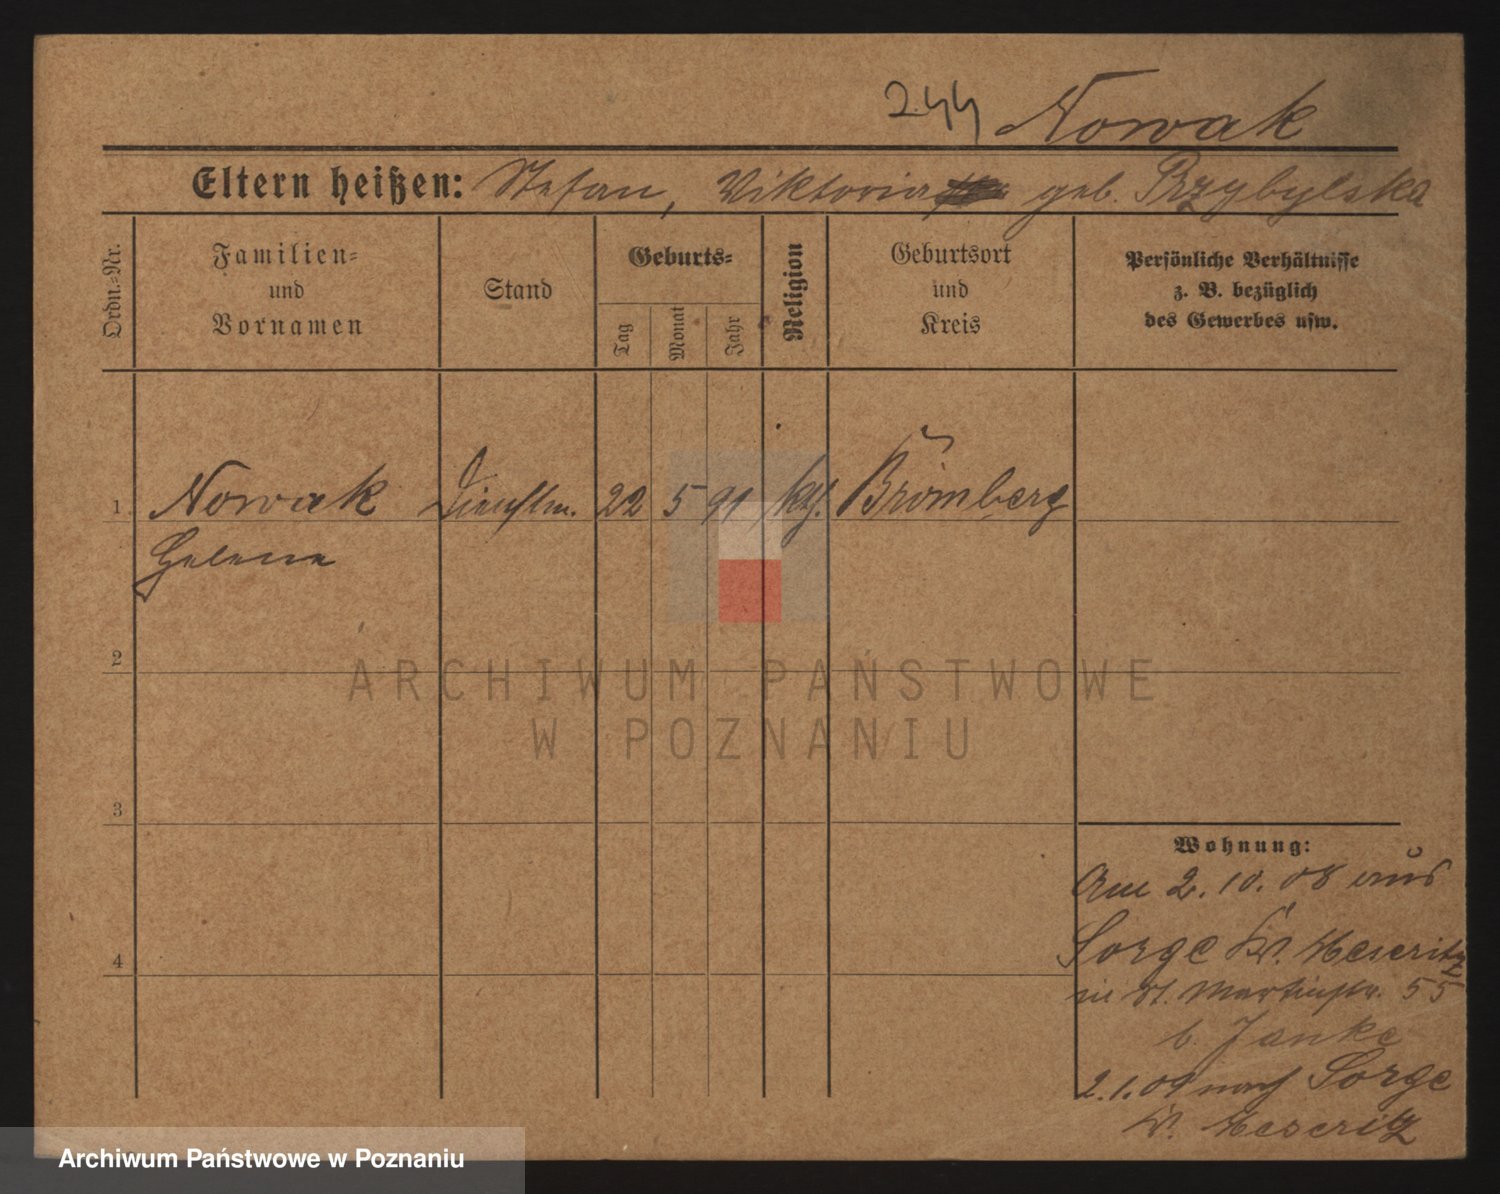 244 Nowak
Eltern heißen: Stefan, Viktoria geb. Przybylska
Ordn.-Nr.
Familien-
und
Vornamen
Stand
Geburts-
Tag
Monat
Jahr
Religion
Geburtsort
und
Kreis
Persönliche Verhältnisse
z. B. bezüglich
des Gewerbes usw.
1. Nowak Dienstm. 22 5 91 kth. Bromberg
Helene
2
3
4
Wohnung:
Am 2.10.08 aus
Sorge Kr. Meseritz
in St. Martinstr. 55
b. Janke
2.1.09 nach Sorge
Kr. Meseritz
ARCHIWUM PAŃSTWOWE
W POZNANIU
Archiwum Państwowe w Poznaniu